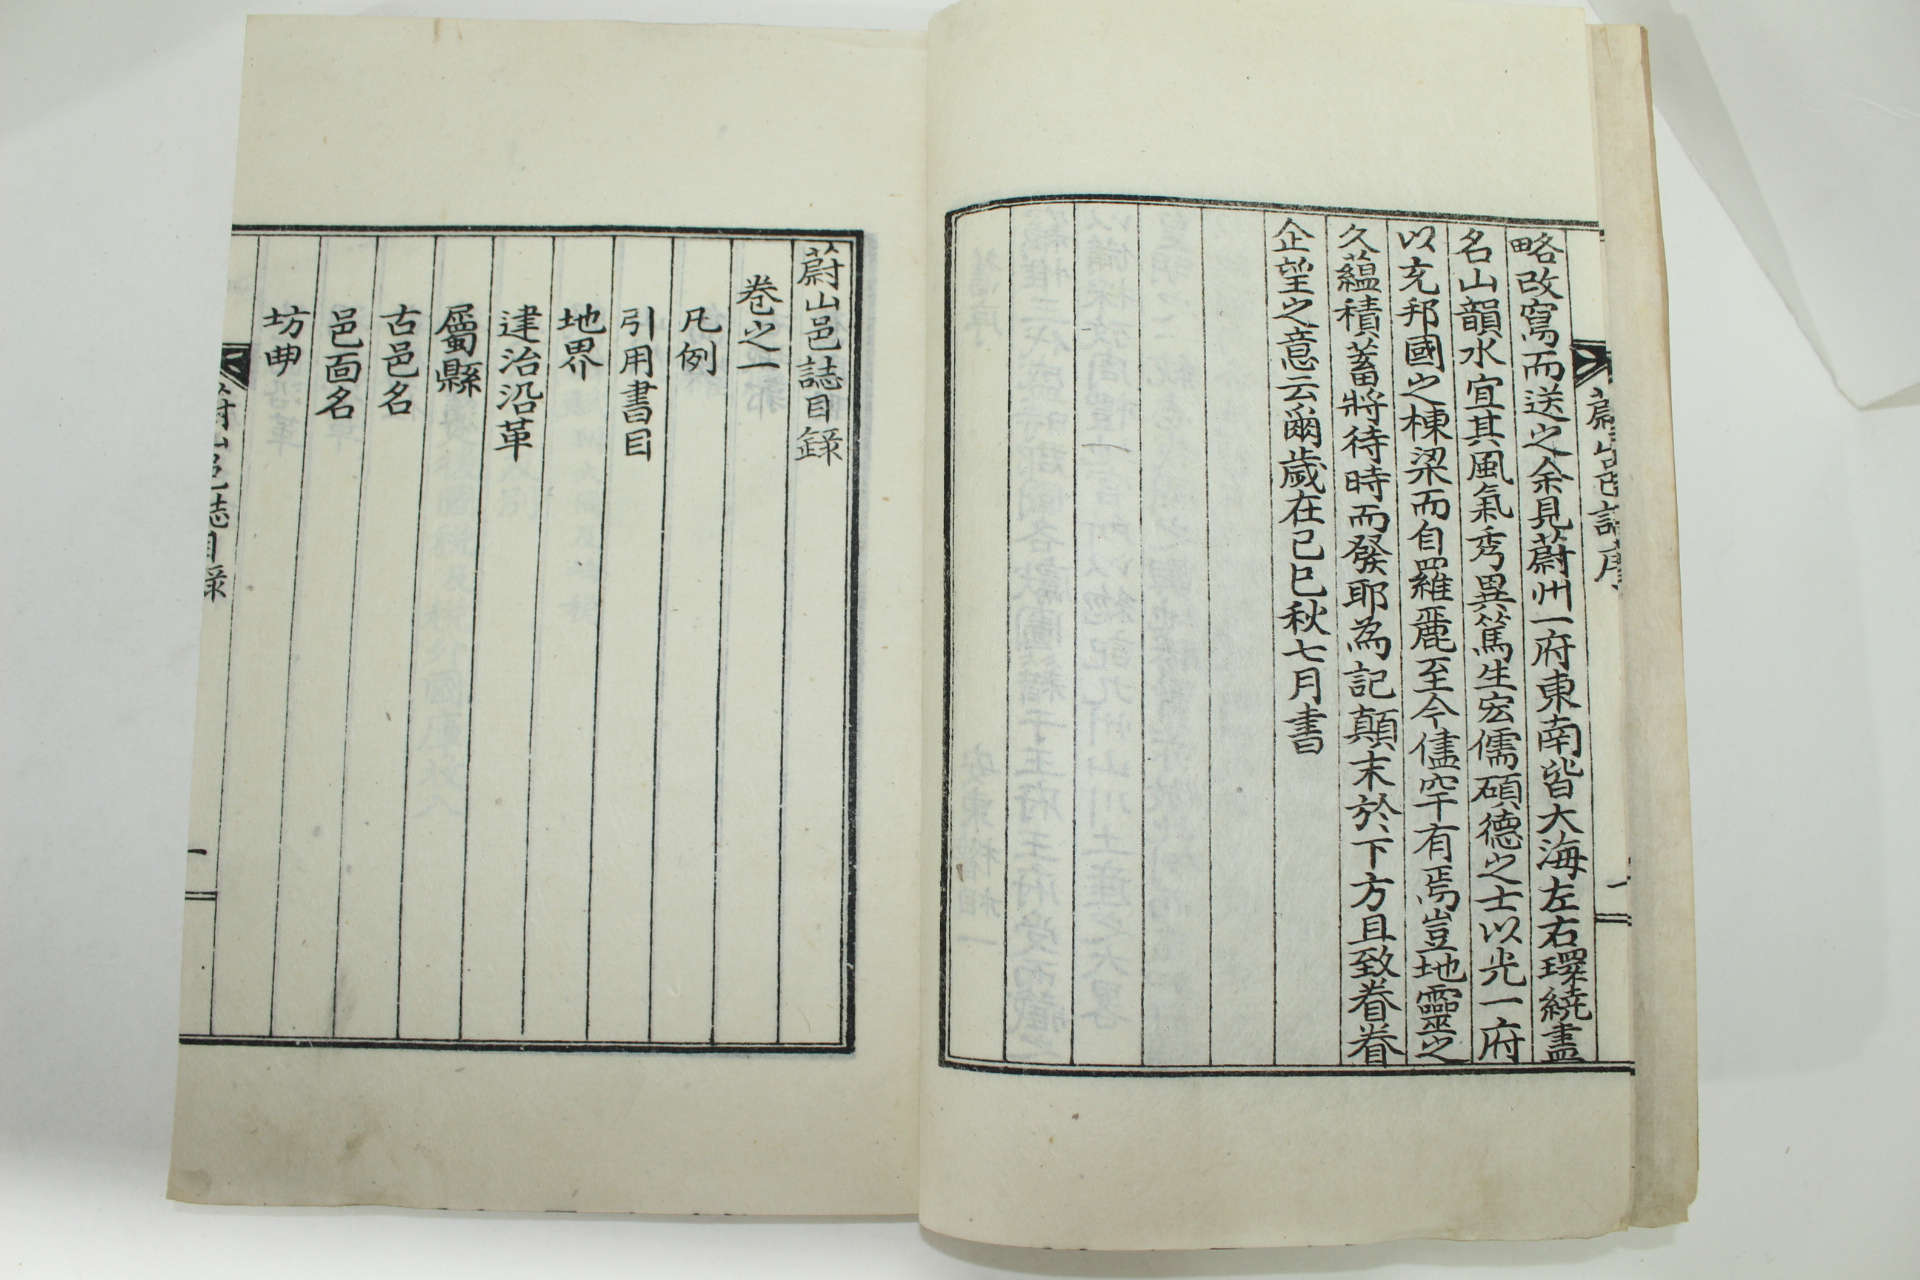 蔚山邑誌序
略改寫而送之余見蔚州一府東南皆大海左右環繞盡
名山韻水宜其風氣秀異篤生宏儒碩德之士以光一府
以充邦國之棟梁而自羅麗至今僅罕有焉豈地靈之
久蘊積蓄將待時而發耶為記顛末於下方且致眷眷
企望之意云爾歲在己巳秋七月書
蔚山邑誌目錄
卷之一
凡例
引用書目
地界
建治沿革
屬縣
古邑名
邑面名
坊曲
蔚山邑誌目錄
一